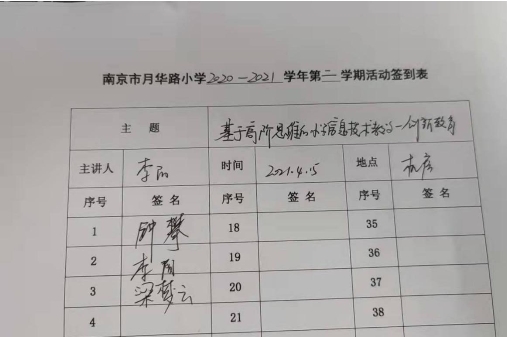 南京市月华路小学2020-2021学年第二学期活动签到表
主题 基于高阶思维的小学信息技术教学-创新教育
主讲人 李 时间 2021.4.15 地点 机房
序号 签名 序号 签名 序号 签名
1 钟攀 18 35
2 李 19 36
3 梁梦云 20 37
4 21 38